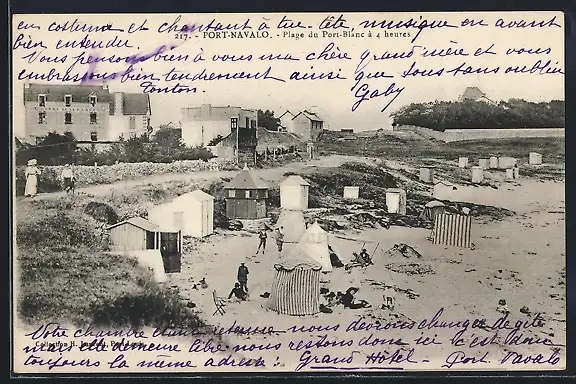 en costume et chantant à tue-tête, musique en avant
bien entendu.
217. - PORT-NAVALO. - Plage du Port-Blanc à 4 heures
Nous pensons bien à vous ma chère grand'mère et vous
embrassons bien tendrement ainsi que tous sans oublier
Tonton. Gaby
Votre chambre étant retenue nous devrons changer de gite
mais elle demeure libre nous restons donc ici c'est donc
Collection H.
toujours la même adresse : Grand Hôtel - Port Navalo